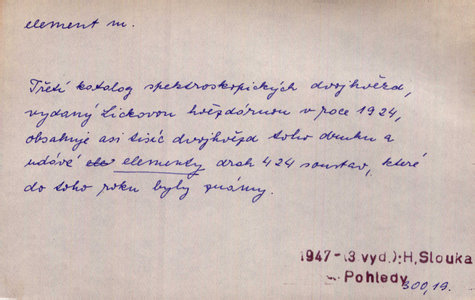 element m.
Třetí katalog spektroskopických dvojhvězd,
vydaný Lickovou hvězdárnou v roce 1924,
obsahuje asi tisíc dvojhvězd toho druhu a
udává elementy drah 424 soustav, které
do toho roku byly známy.
1947-(3 vyd.):H,Slouka
Pohledy
300,19.